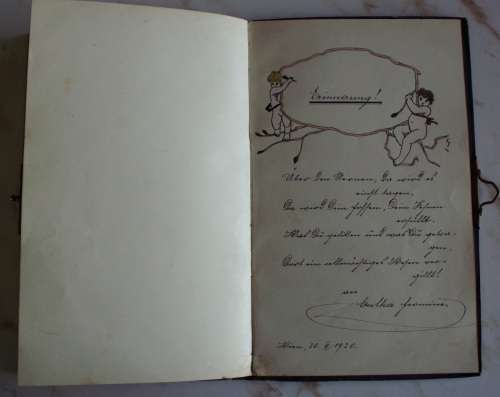 Erinnerung!
Über den Sternen, da wird es
einst tagen,
Da wird dein Hoffen, dein Sehnen
erfüllt.
Was Du gelitten und was Du getra-
gen,
Dort ein allmächtiges Wesen ver-
gilt!
Wien, 20. 1920.